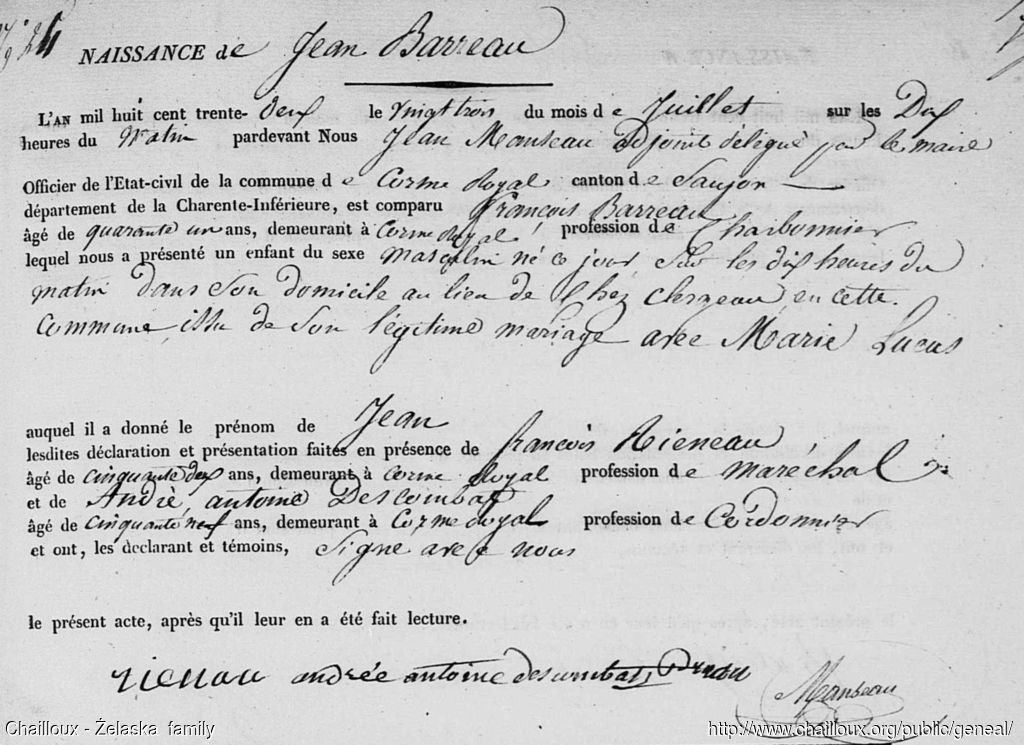 24
NAISSANCE de Jean Barreau
L'AN mil huit cent trente-deux le vingt trois du mois de Juillet sur les Dix
heures du Matin pardevant Nous Jean Manseau adjoint délégué par le maire
Officier de l'Etat-civil de la commune de Corme Royal canton de Saujon
département de la Charente-Inférieure, est comparu François Barreau
âgé de quarante un ans, demeurant à Corme Royal, profession de Charbonnier
lequel nous a présenté un enfant du sexe masculin né ce jour sur les dix heures du
matin dans son domicile au lieu de Chez en cette
commune, issu de son légitime mariage avec Marie Lucas
auquel il a donné le prénom de Jean
lesdites déclaration et présentation faites en présence de françois Rieneau
âgé de cinquante deux ans, demeurant à Corme Royal profession de maréchal
et de Andrè, antoine Descombat
âgé de cinquante neuf ans, demeurant à Corme Royal profession de Cordonnier
et ont, les declarant et témoins, Signé avec nous
le présent acte, après qu'il leur en a été fait lecture.
andrée antoine descombats Manseau
Chailloux - Żelaska family http://www.chailloux.org/public/geneal/